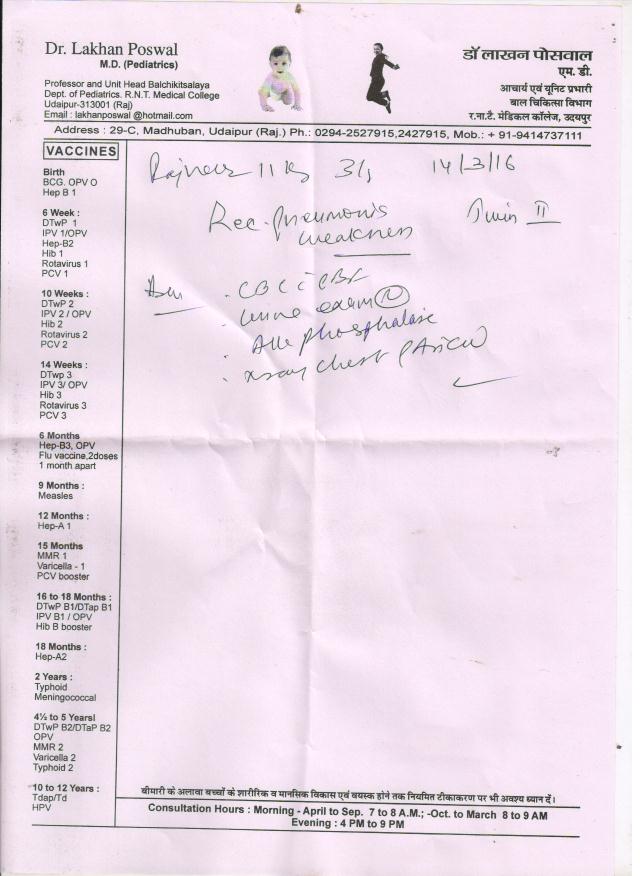 Dr. Lakhan Poswal
M.D. (Pediatrics)
Professor and Unit Head Balchikitsalaya
Dept. of Pediatrics. R.N.T. Medical College
Udaipur-313001 (Raj)
Email : lakhanposwal @hotmail.com
डॉ लाखन पोसवाल
एम. डी.
आचार्य एवं यूनिट प्रभारी
बाल चिकित्सा विभाग
र.ना.टै. मेडिकल कॉलेज, उदयपुर
Address : 29-C, Madhuban, Udaipur (Raj.) Ph.: 0294-2527915,2427915, Mob.: + 91-9414737111
VACCINES
Birth
BCG. OPV O
Hep B 1
6 Week :
DTwP 1
IPV 1/OPV
Hep-B2
Hib 1
Rotavirus 1
PCV 1
10 Weeks :
DTwP 2
IPV 2 / OPV
Hib 2
Rotavirus 2
PCV 2
14 Weeks :
DTwp 3
IPV 3/ OPV
Hib 3
Rotavirus 3
PCV 3
6 Months
Hep-B3, OPV
Flu vaccine,2doses
1 month apart
9 Months :
Measles
12 Months :
Hep-A 1
15 Months
MMR 1
Varicella - 1
PCV booster
16 to 18 Months :
DTwP B1/DTap B1
IPV B1 / OPV
Hib B booster
18 Months :
Hep-A2
2 Years :
Typhoid
Meningococcal
4½ to 5 Yearsl
DTwP B2/DTaP B2
OPV
MMR 2
Varicella 2
Typhoid 2
10 to 12 Years :
Tdap/Td
HPV
11 kg 14/3/16
Rec. pneumonis Twin II
weakness
CBC
urine exam (R)
phosphatase
xray chest
बीमारी के अलावा बच्चों के शारीरिक व मानसिक विकास एवं वयस्क होने तक नियमित टीकाकरण पर भी अवश्य ध्यान दें।
Consultation Hours : Morning - April to Sep. 7 to 8 A.M.; -Oct. to March 8 to 9 AM
Evening : 4 PM to 9 PM